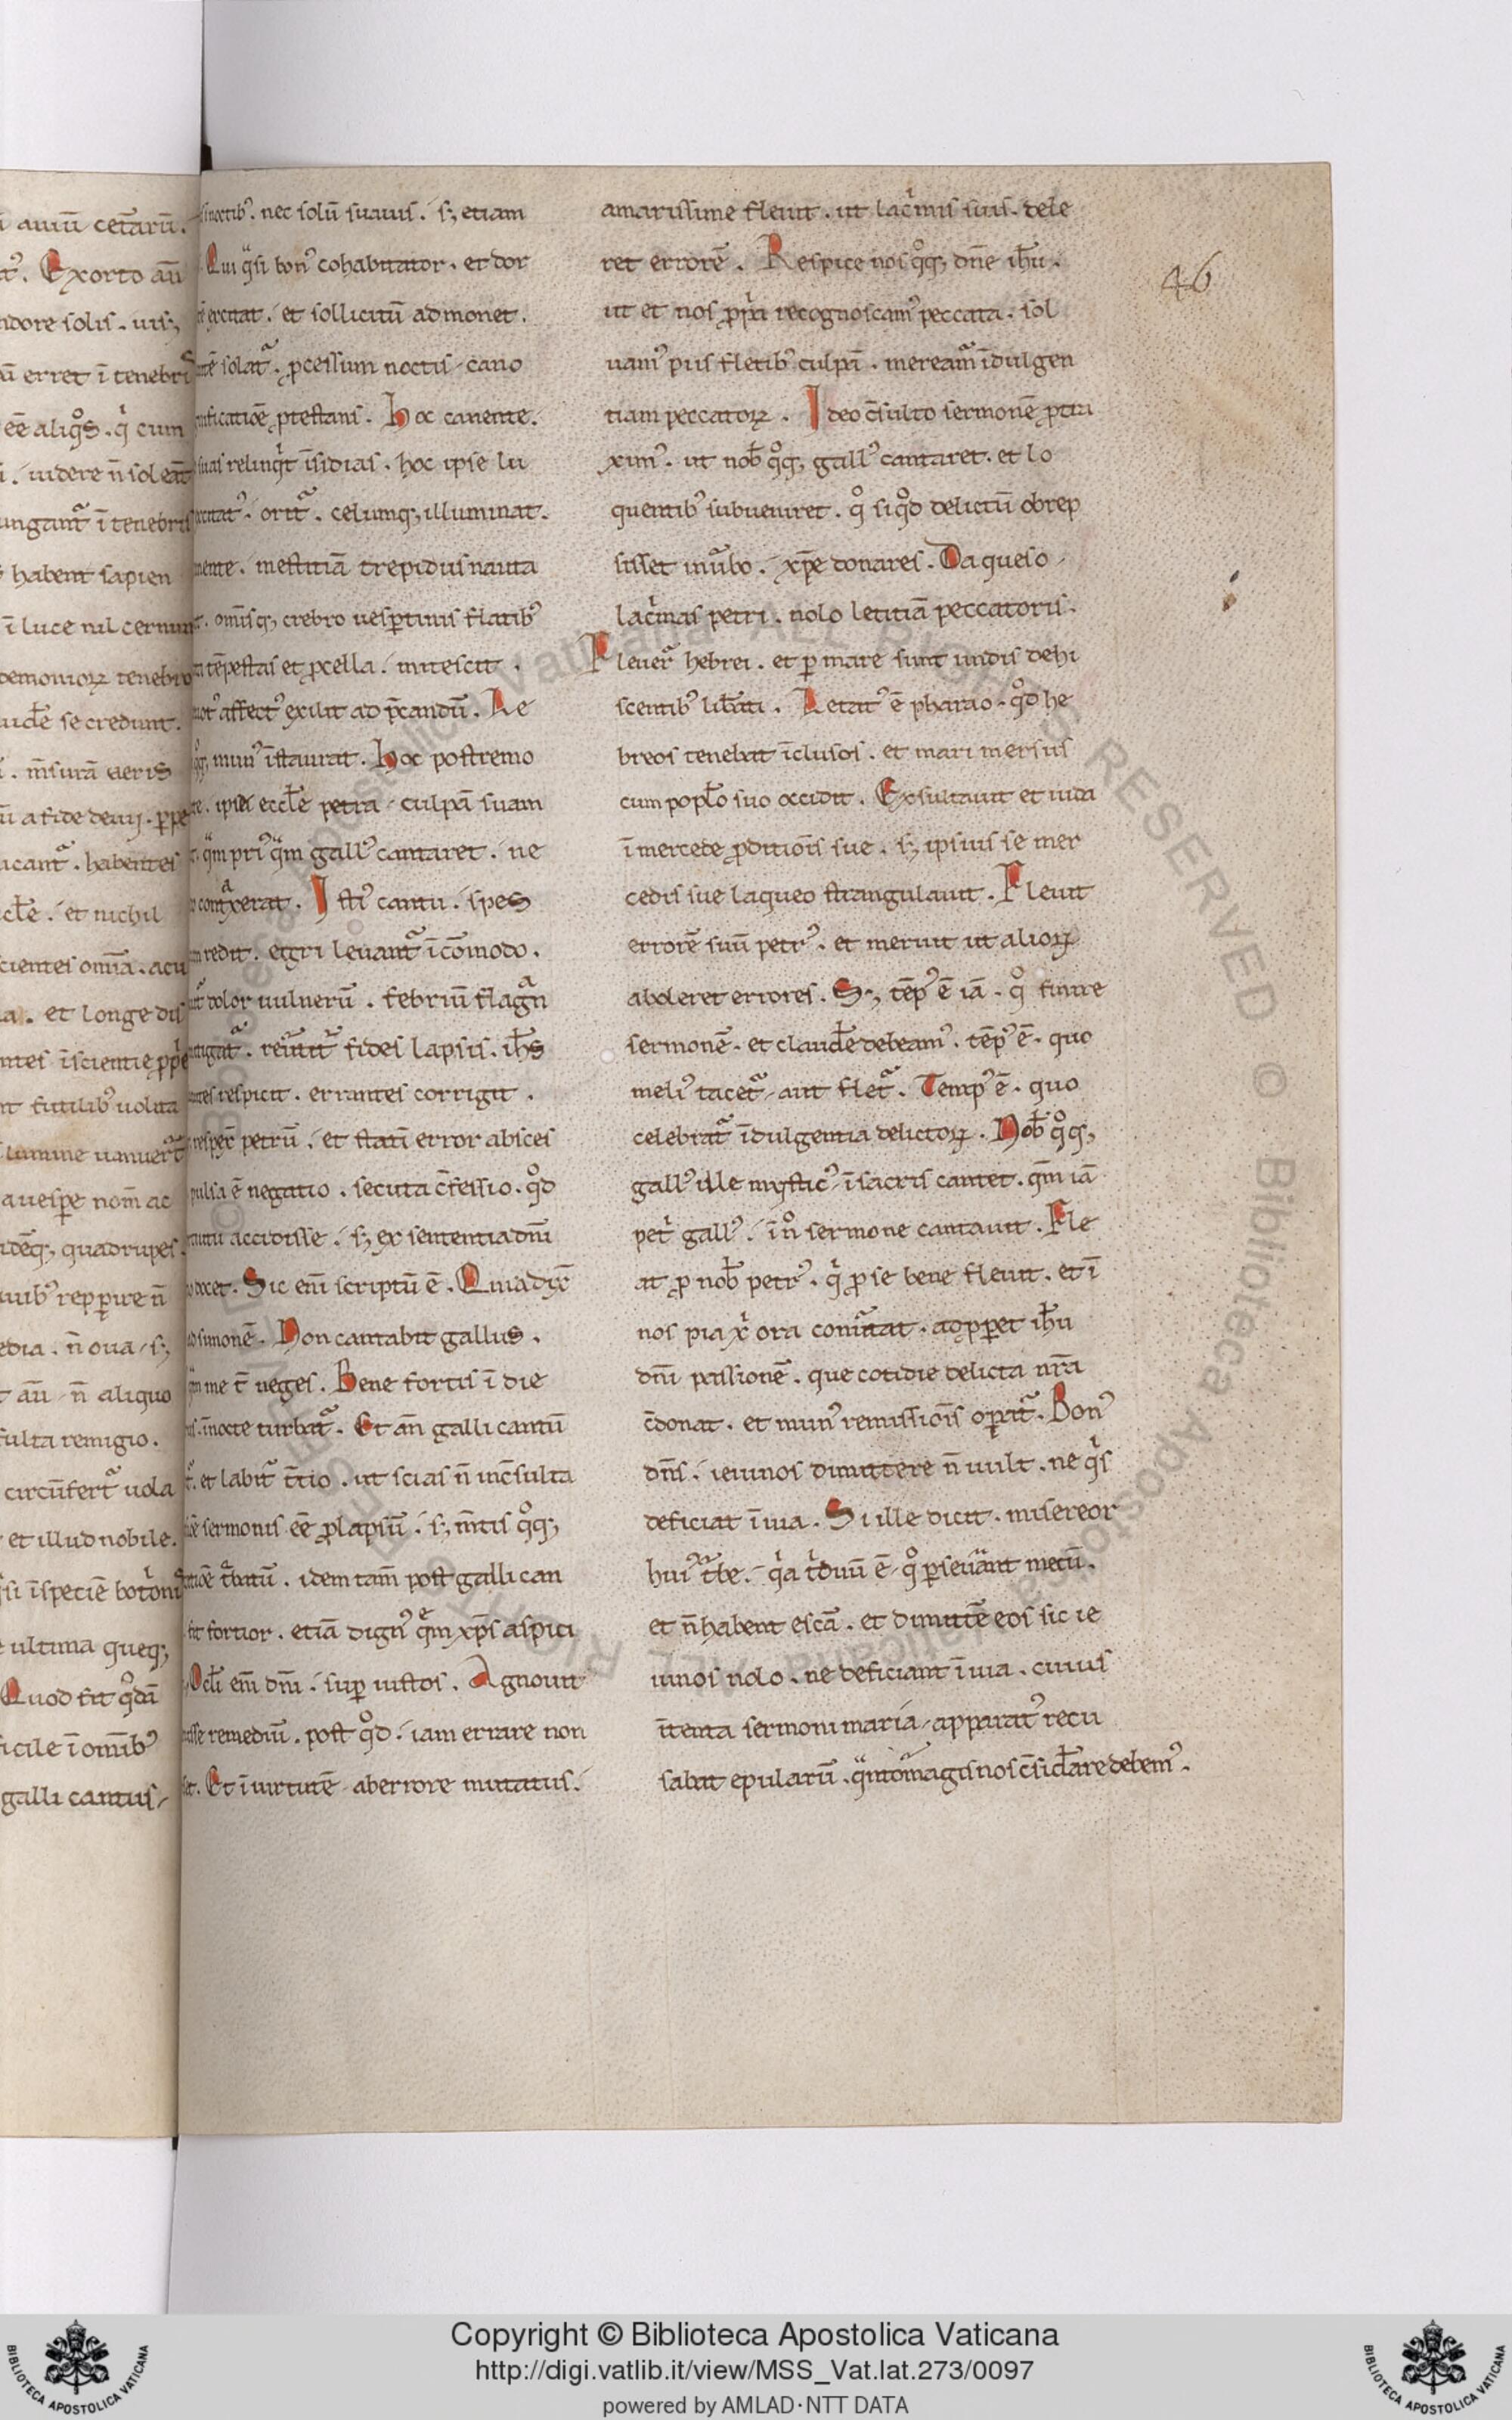 auiū cet̄arū.
Exorto aū
dore solis. uis;
erret ī tenebris
eē aliqͦs. qͥ cum
uidere n̄ solent
ungantᷣ ī tenebris
habent sapien
ī luce nil cernunt
demonioꝝ tenebro
uidē se credunt.
. m̄surā aeris
a fide deuij. ꝑpe
icantᷣ. habentes
cłe. et nichil
cientes om̄ia. acu
a. et longe dis
ntes īscientie
futilibꝰ uolita
lumine
auespe nom̄ ac
idēqꝫ quadrupes.
uibꝰ repꝑire n̄
edia. n̄ oua. sꝫ
aū. n̄ aliquo
fulta remigio.
circūfertᷣ uola
et illud nobile.
si īspeciē
ultima queqꝫ
Quod fit qͦdā
icile ī om̄ibꝰ
galli cantus.
noctibꝰ. nec solū suauis. sꝫ etiam
Qui qͣsi bonꝰ cohabitator. et dor
excitat. et sollicitū admonet.
solatᷣ. ꝓcessum noctis. cano
ificatiōe ꝓtestans. Hoc canente.
suas relinqͥt īsidias. hoc ipse lu
oritᷣ. celumqꝫ illuminat.
mestitiā trepidus nauta
om̄isqꝫ crebro uesꝑtinis flatibꝰ
tēpestas et ꝓcella. mitescit.
affectꝰ exilit ad p̄candū. Le
munꝰ īstaurat. Hoc postremo
ipsa eccłe petra. culpā suam
qͣm priꝰ qͣm gallꝰ cantaret. ne
contᷓxerat. Istiꝰ cantu. spes
redit. egri leuantᷣ īcōmodo.
dolor uulnerū. febriū flagᷓn
reutitᷣ fides lapsis. ih̄s
respicit. errantes corrigit.
petrū. et statī error absces
pulsa ē negatio. secuta c̄fessio. qͦd
accidisse. sꝫ ex sententia dn̄i
docet. Sic eni scriptū ē. Quia dix̄
ad simonē. Non cantabit gallus.
me t̄ neges. Bene fortis ī die
īnocte turbatᷣ. Et an̄ galli cantū
et labitᷣ t̄tio. ut scias n̄ inc̄sulta
sermonis eē ꝓlapsū. sꝫ m̄tis qͦqꝫ
idem tam̄ post galli can
fit fortior. etiā dignꝰ quem xp̄s aspici
Ocłi eni dn̄i. suꝑ iustos. Agnouit
remediū. post qͦd. iam errare non
Et ī uirtutē aberrore mutatus.
amarissime fleuit. ut lacͥmis suis. dele
ret errorē. Respice nos qͦqꝫ dn̄e ih̄u.
ut et nos ꝓpͥa recognoscamꝰ peccata. sol
uamꝰ piis fletibꝰ culpā. mereamᷣ īdulgen
tiam peccatoꝝ. Ideo c̄sulto sermonē ꝓtra
ximꝰ. ut nob̄ qͦqꝫ gallꝰ cantaret. et lo
quentibꝰ subueniret. qͦ siqͦd delictū obrep
sisset inuᷣbo. xp̄e donares. Da queso
lacͥmas petri. nolo letitiā peccatoris.
Fleuerᷣ hebrei. et ꝑ mare sunt undis dehi
scentibꝰ lib̄ati. Letatꝰ ē pharao. qͦd he
breos tenebat īclusos. et mari mersus
cum popło suo occidit. Exsultauit et iuda
ī mercede ꝓditiōis sue. sꝫ ipsius se mer
cedis sue laqueo strangulauit. Fleuit
errorē suū petrꝰ. et meruit ut alioꝝ
aboleret errores. Sꝫ tēpꝰ ē iā. qͦ finire
sermonē. et claudē debeamꝰ. tēpꝰ ē. quo
meliꝰ tacetᷣ. aut fletᷣ. Tempꝰ ē. quo
celebratᷣ īdulgentia delictoꝝ. Nob̄ qͦqꝫ
gallꝰ ille mysticꝰ. īsacris cantet. qm̄ iā
petͥ gallꝰ. īnͦ sermone cantauit. Fle
at ꝓ nob̄ petrꝰ. qͥ ꝓse bene fleuit. et ī
nos pia xͥ ora conuᷣtat. aꝓꝑet ih̄u
dn̄i passionē. que cotidie delicta nr̄a
c̄donat. et munꝰ remissiōis oꝑatᷣ. Bonꝰ
dn̄s. ieiunos dimittere n̄ uult. ne qͥs
deficiat ī uia. Si ille dicit. misereor
huiꝰ tᷣbe. qͥa tͥduū ē. qͦ ꝑseuᷓant mecū.
et n̄ habent escā. et dimittē eos sic ie
iunos nolo. ne deficiant ī uia. cuius
ītenta sermoni maria. apparatꝰ recu
sabat epularū. qͣntomagis nos c̄sid̄are debemꝰ.
46
Copyright © Biblioteca Apostolica Vaticana
http://digi.vatlib.it/view/MSS_Vat.lat.273/0097
powered by AMLAD·NTT DATA
BIBLIOTECA APOSTOLICA VATICANA
BIBLIOTECA APOSTOLICA VATICANA